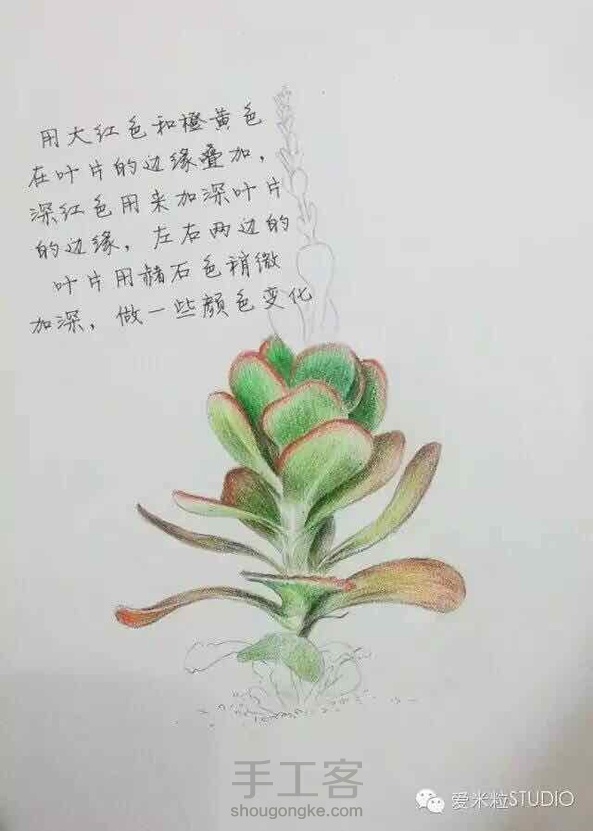 用大红色和橙黄色
在叶片的边缘叠加，
深红色用来加深叶片
的边缘，左右两边的
叶片用赭石色稍微
加深，做一些颜色变化
手工客
shougongke.com
爱米粒STUDIO